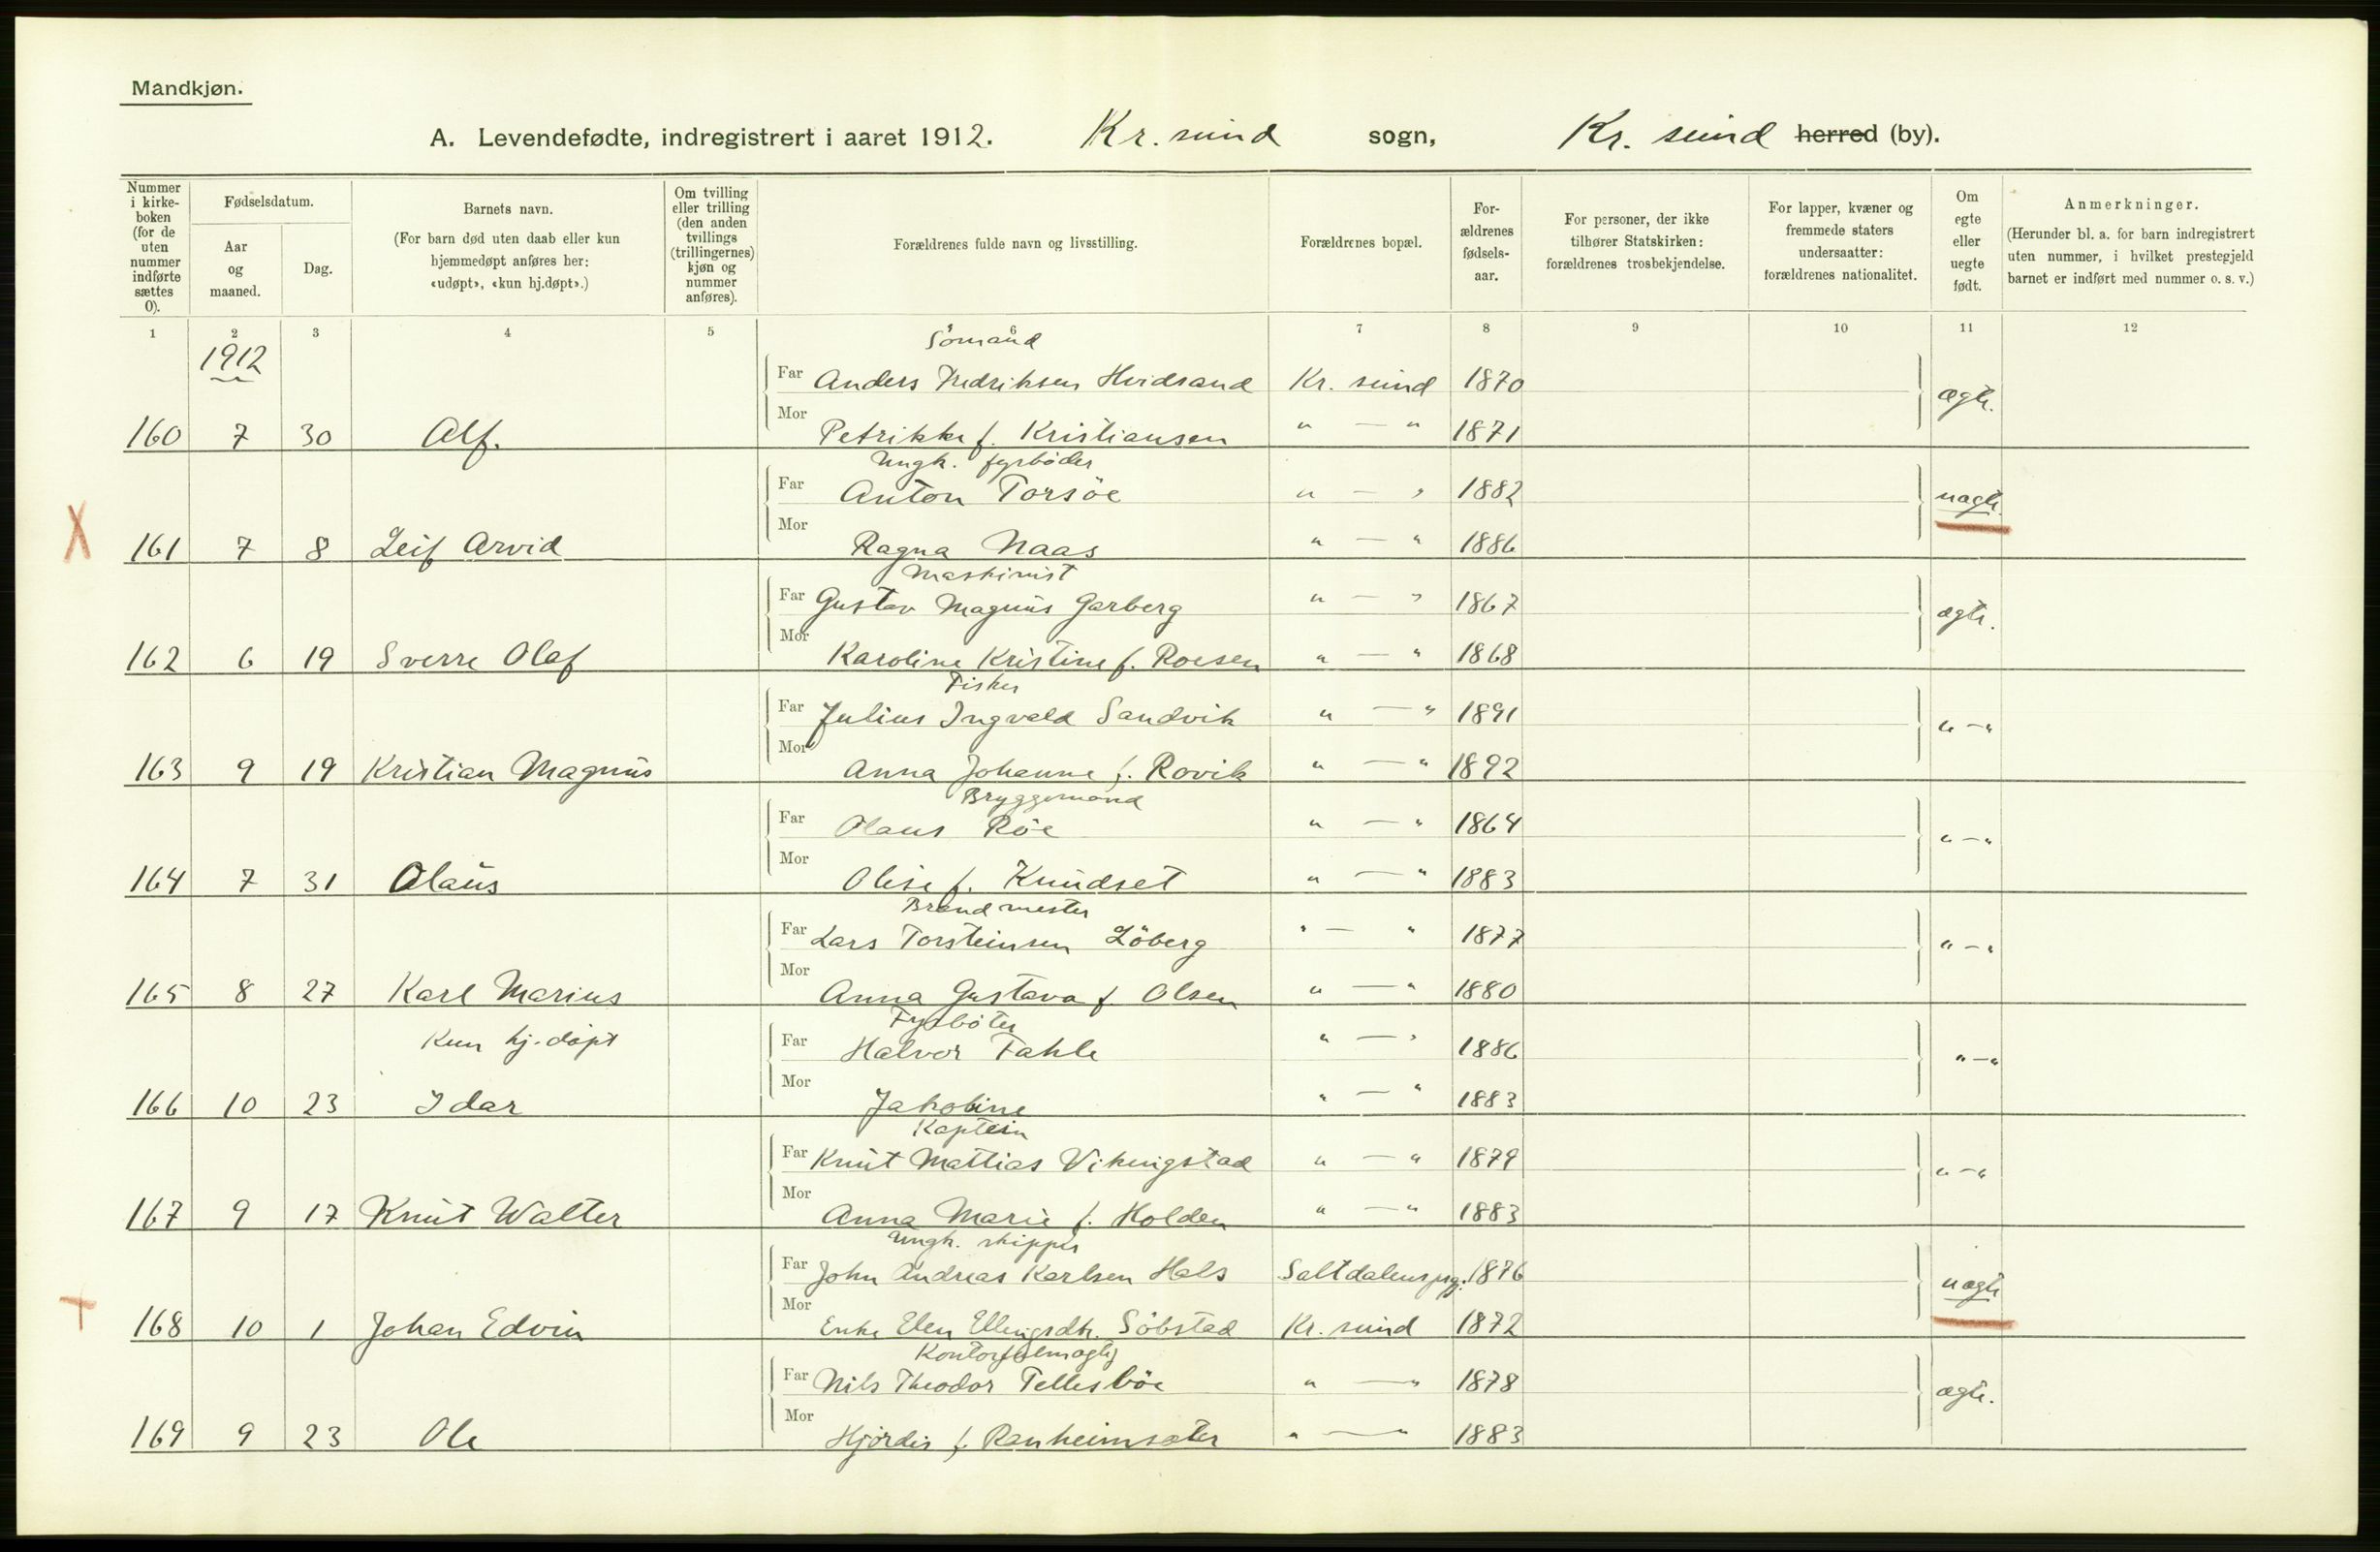 Mandkjøn.
A. Levendefødte, indregistrert i aaret 1912. Kr. sund sogn, Kr. sund herred (by).
Nummer i kirkeboken (for de uten nummer indførte sættes 0).
Fødselsdatum.
Aar og maaned.
Dag.
Barnets navn.
(For barn død uten daab eller kun hjemmedøpt anføres her: «udøpt», «kun hj.døpt».)
Om tvilling eller trilling (den anden tvillings (trillingernes) kjøn og nummer anføres).
Forældrenes fulde navn og livsstilling.
Forældrenes bopæl.
Forældrenes fødselsaar.
For personer, der ikke tilhører Statskirken: forældrenes trosbekjendelse.
For lapper, kvæner og fremmede staters undersaatter: forældrenes nationalitet.
Om egte eller uegte født.
Anmerkninger.
(Herunder bl. a. for barn indregistrert uten nummer, i hvilket prestegjeld barnet er indført med nummer o. s. v.)
1 2 3 4 5 6 7 8 9 10 11 12
1912
Sömand
Far Anders Fredriksen Hvidsand Kr. sund 1870 ægte.
160 7 30 Alf. Mor Petrikke f. Kristiansen " — " 1871
Ungk. fyrböder
Far Anton Torsöe " — " 1882 uægte.
X 161 7 8 Leif Arvid Mor Ragna Naas " — " 1886
Maskinist
Far Gustav Magnus Garberg " — " 1867 ægte.
162 6 19 Sverre Olaf Mor Karoline Kristine f. Roesen " — " 1868
Fisker
Far Julius Ingvald Sandvik " — " 1891 " — "
163 9 19 Kristian Magnus Mor Anna Johanne f. Rovik " — " 1892
Bryggemand
Far Olaus Röe " — " 1864 " — "
164 7 31 Olaus Mor Olise f. Knudset " — " 1883
Brandmester
Far Lars Torsteinsen Löberg " — " 1877 " — "
165 8 27 Karl Marius Mor Anna Gustava f. Olsen " — " 1880
Fyrböter
Kun hj.döpt Far Halvor Fahle " — " 1886 " — "
166 10 23 Idar Mor Jakobine " — " 1883
Kaptein
Far Knut Mattias Vikingstad " — " 1879 " — "
167 9 17 Knut Walter Mor Anna Marie f. Holden " — " 1883
Ungk. skipper
Far John Andreas Karlsen Hals Saltdalens prg. 1876 uægte
168 10 1 Johan Edvin Mor Enke Elen Ellingsdtr. Söbstad Kr. sund 1872
Kontorfulmægtig
Far Nils Theodor Tellesböe " — " 1878 ægte.
169 9 23 Ole Mor Hjördis f. Ranheimsæter " — " 1883